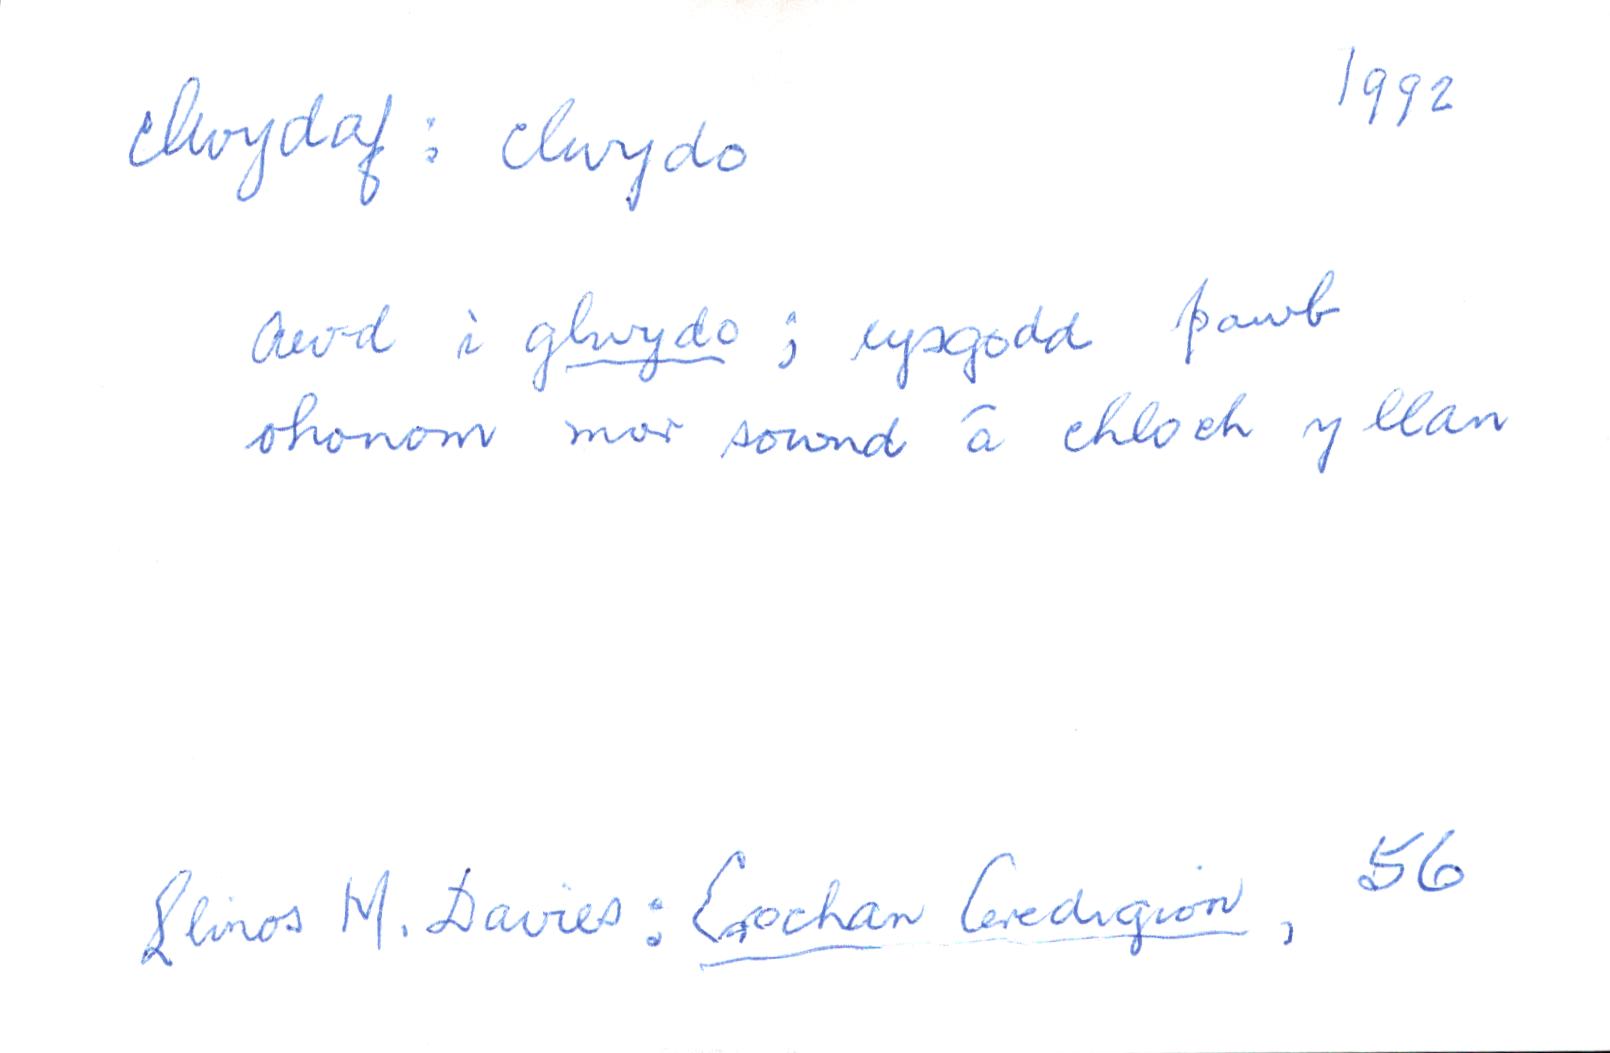 clwydaf : clwydo
1992
Aevd i glwydo ; cysgodd pawb
ohonom mor sownd â chloch y llan
Llinos M. Davies : Crochan Ceredigion , 56